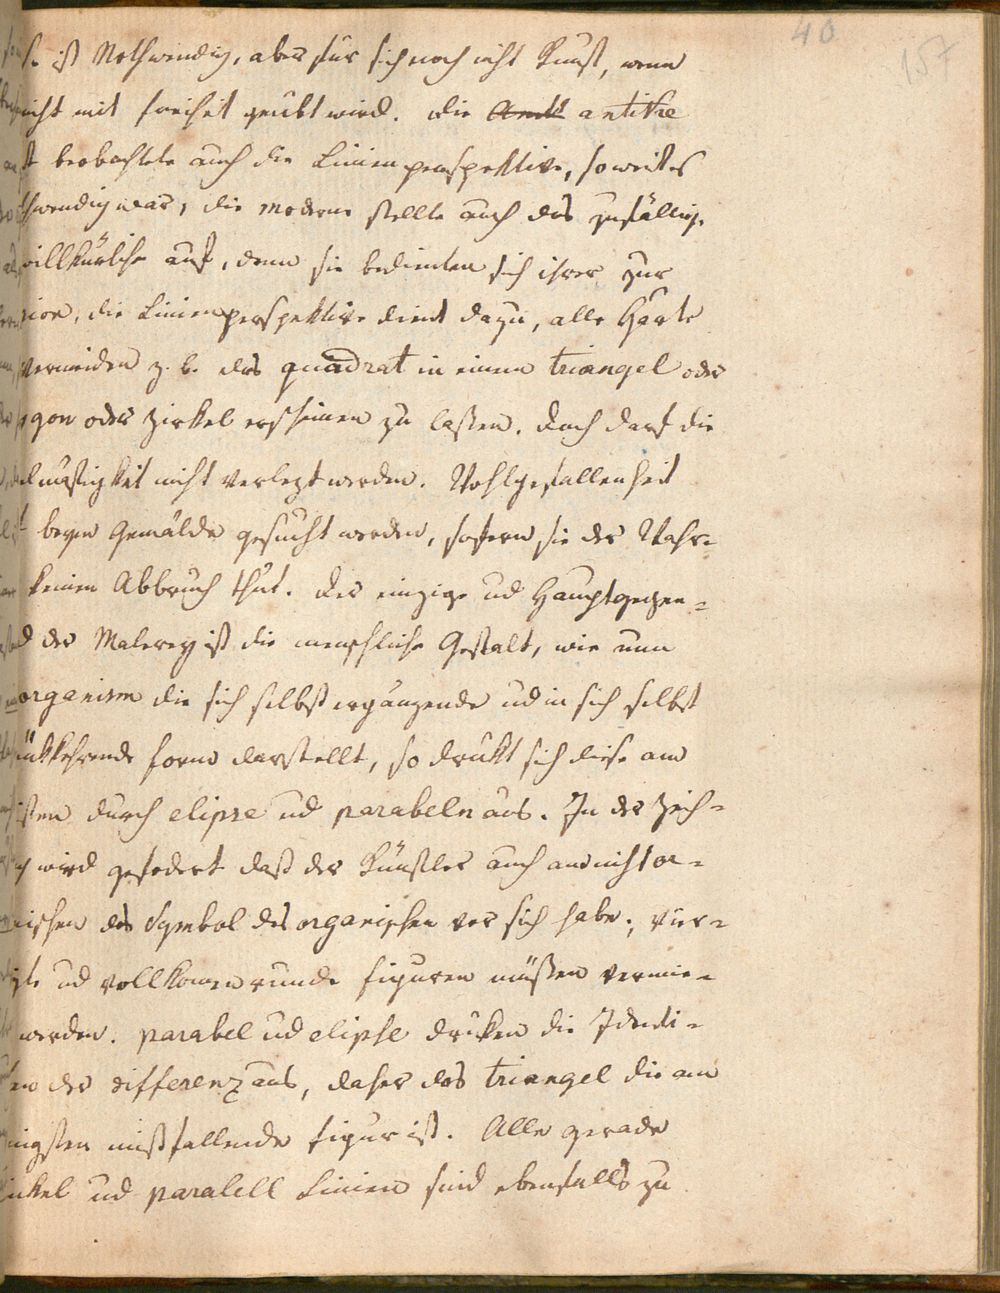 40
157
ist Nothwendig, aber für sich noch nicht Kunst, wenn
nicht mit freiheit geübt wird. die Antik antike
beobachtete auch die Linienperspektive, soweit es
thwendig war, die moderne stellte auch das zufällige
willkürliche auf, denn sie bedienten sich ihrer zur
die Linienperspektive dient dazu, alle Härte
vermeiden z. b. das quadrat in einem triangel oder
gon oder Zirkel erscheinen zu lassen. doch darf die
elmäsigkeit nicht verlezt werden. Wohlgefallenheit
beym Gemälde gesucht werden, sofern sie der Wahr=
keinen Abbruch thut. Der einzige ud Hauptgegen=
d der Malerey ist die menschliche Gestalt, wie nun
organism die sich selbst ergänzende ud in sich selbst
ükkehrende form darstellt, so drükt sich diese am
isten durch elipse ud parabeln aus. In der Zeich=
wird gefodert daß der Künstler auch am nicht or=
nischen das Symbol des organischen vor sich habe; Vier=
gte ud vollkomen runde figuren müssen vermie=
werden. parabel ud elipse drüken die Identi=
der differenz aus, daher das triangel die am
nigsten misfallende figur ist. Alle gerade
inkel ud paralell Linien sind ebenfalls zu